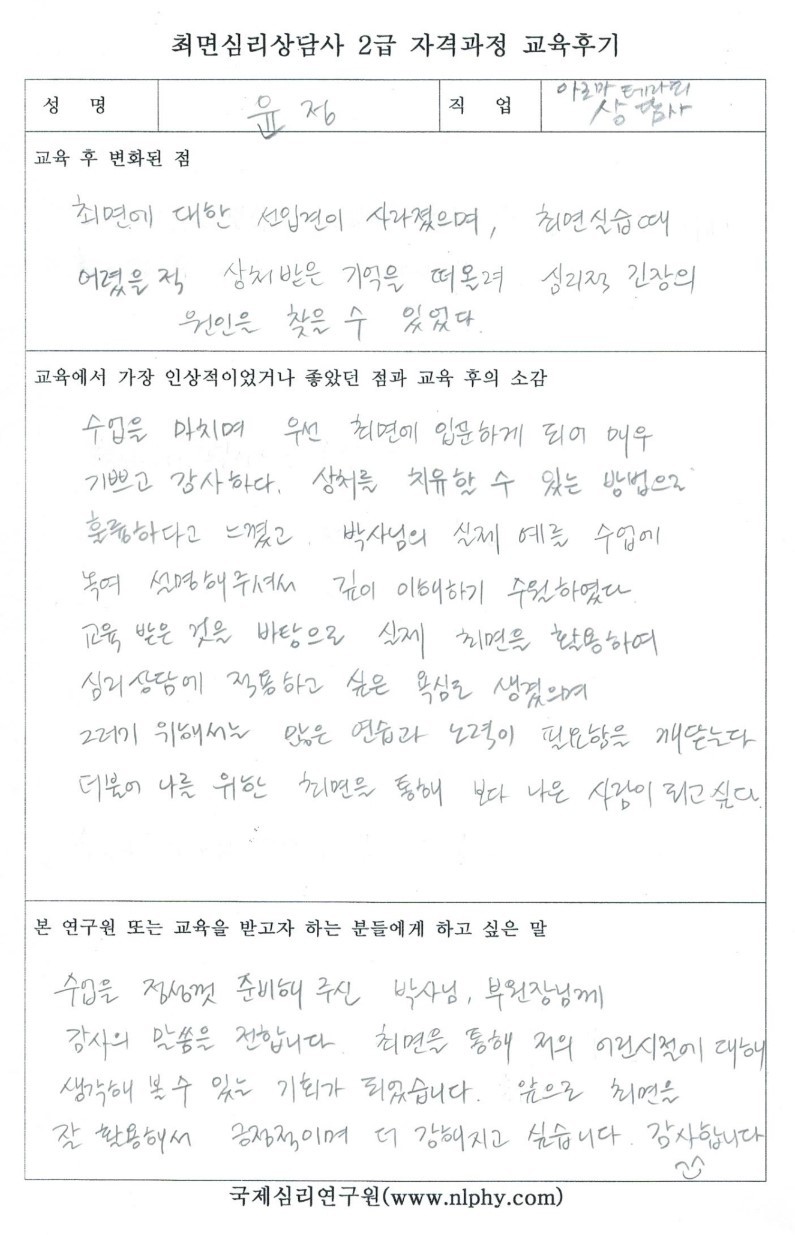 최면심리상담사 2급 자격과정 교육후기
성 명 윤 정 직 업 아로마 테라피
상담사
교육 후 변화된 점
최면에 대한 선입견이 사라졌으며, 최면실습때
어렸을 적 상처받은 기억을 떠올려 심리적 긴장의
원인을 찾을 수 있었다.
교육에서 가장 인상적이었거나 좋았던 점과 교육 후의 소감
수업을 마치며 우선 최면에 입문하게 되어 매우
기쁘고 감사하다. 상처를 치유할 수 있는 방법으로
훌륭하다고 느꼈고, 박사님의 실제 예를 수업에
녹여 설명해주셔서 깊이 이해하기 수월하였다.
교육 받은 것을 바탕으로 실제 최면을 활용하여
심리상담에 적용하고 싶은 욕심도 생겼으며
그러기 위해서는 많은 연습과 노력이 필요함을 깨닫는다
더불어 나를 위한 최면을 통해 보다 나은 사람이 되고싶다.
본 연구원 또는 교육을 받고자 하는 분들에게 하고 싶은 말
수업을 정성껏 준비해 주신 박사님, 부원장님께
감사의 말씀을 전합니다. 최면을 통해 저의 어린시절에 대해
생각해 볼 수 있는 기회가 되었습니다. 앞으로 최면을
잘 활용해서 긍정적이며 더 강해지고 싶습니다. 감사합니다
국제심리연구원(www.nlphy.com)